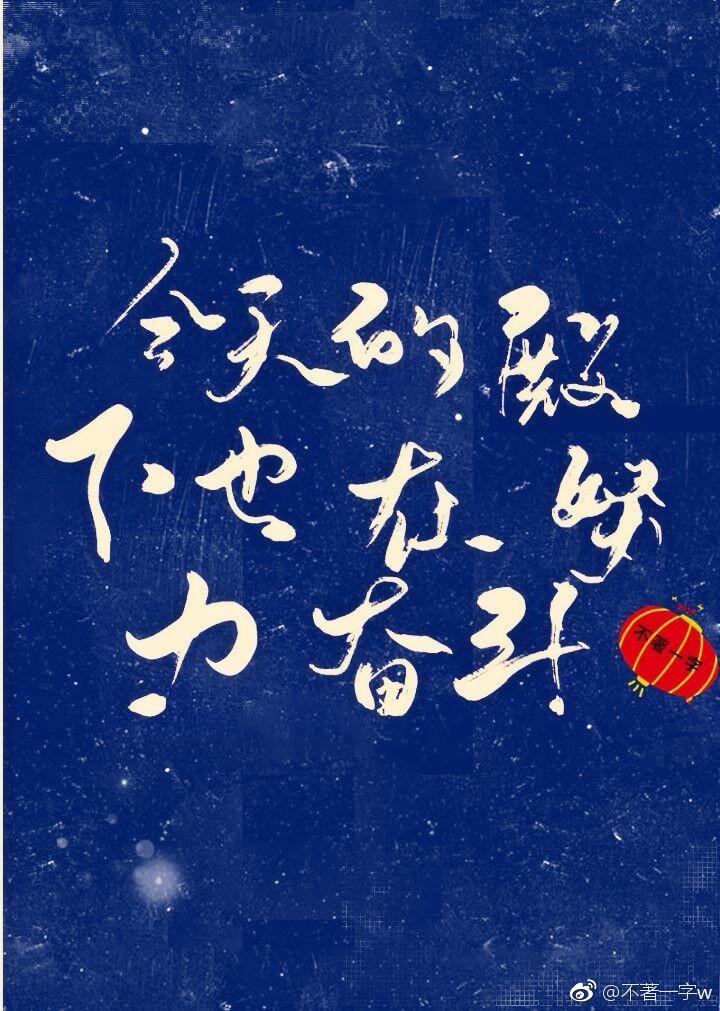 今天的殿
下也在努
力奋斗
不著一字
@不著一字w